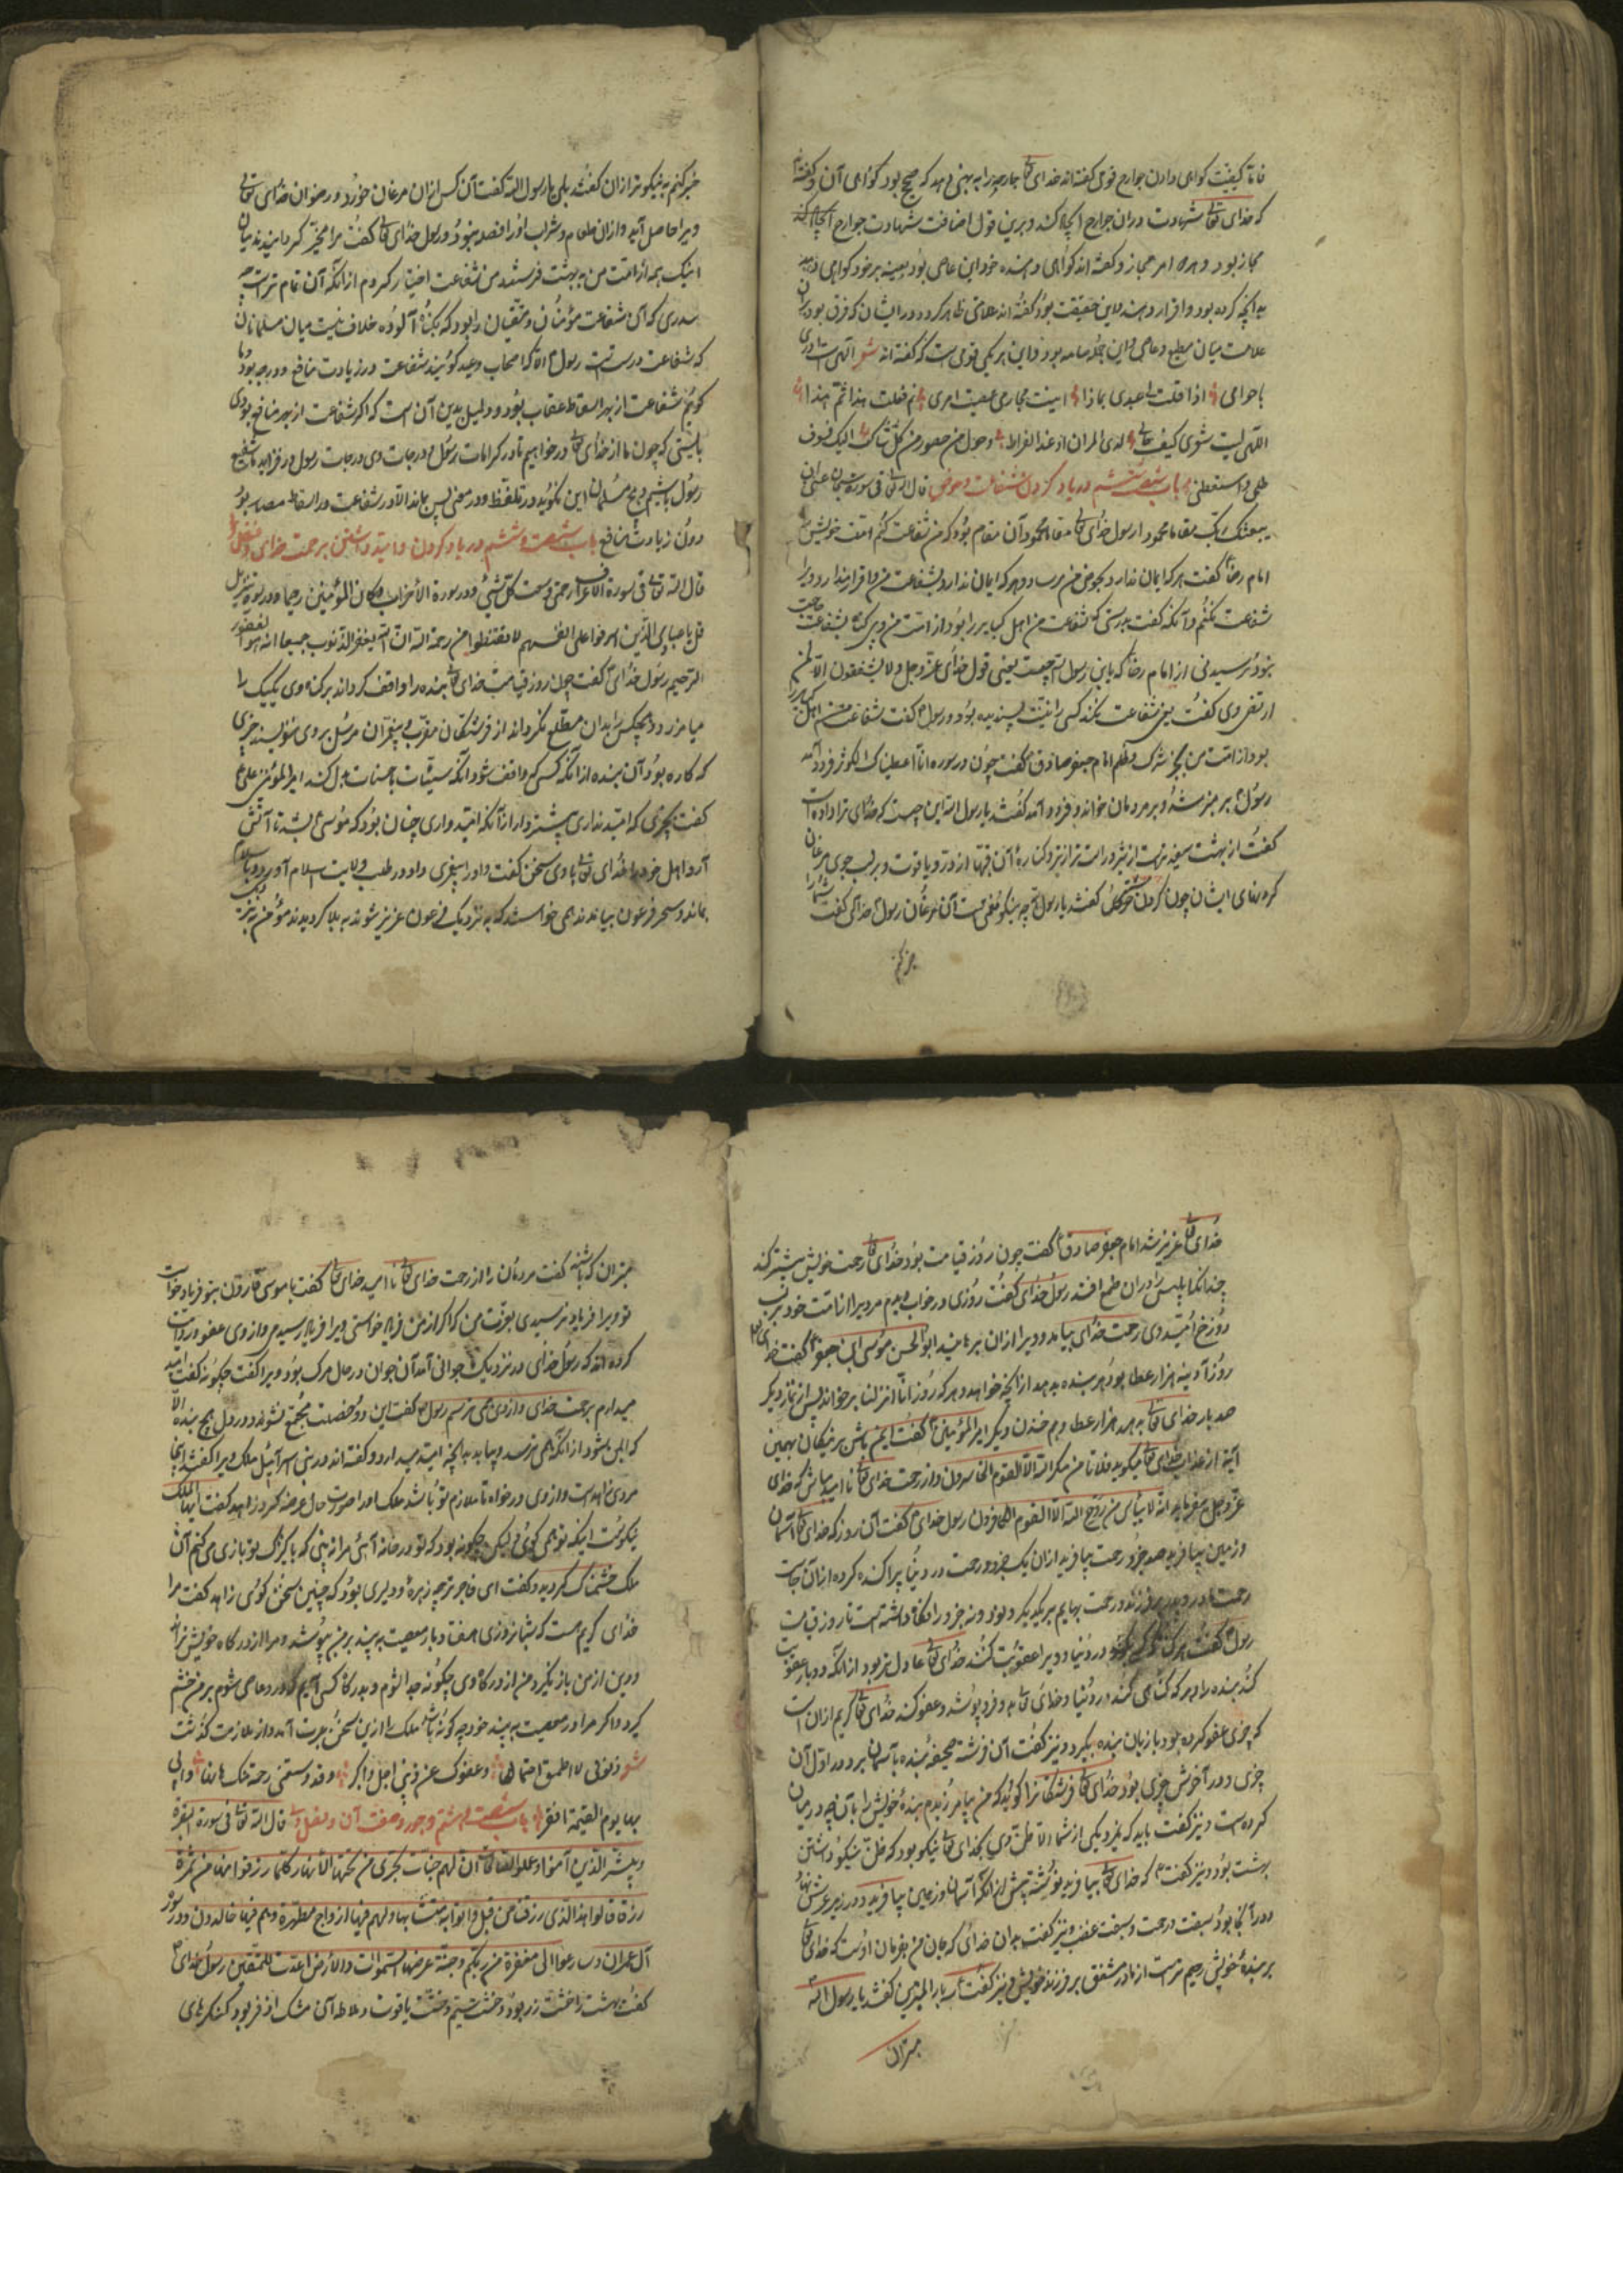 فاما کیفیت کواهی دادن جوارح قومی کفته‌اند خدای تعالی جارحه را به بنیتی دهد که صحیح بود کواهی آن و کفته‌اند
که خدای تعالی شهادت در آن جوارح ایجاد کند و برین قول اضافت شهادت جوارح
مجاز بود و هم امر مجاز و کفته‌اند کواهی دهنده خود این عاصی بود بعینه بر خود کواهی دهد
به آنچه کرده بود و اقرار دهد و این حقیقت بود کفته‌اند علامتی ظاهر کردد در ایشان که فرق بود
علامت میان مطیع و عاصی و این بر یکی قومی است که کفته‌اند شعر الهی
باجرامی اذا قلت لی عبدی بماذا اتیت مجاری عصیت امری لم فعلت هذا ثم هذا
الهی لیت شعری کیف حالی لدی المیزان او عند الصراط
باب شصت و پنجم در یاد کردن شفاعت و حوض قال الله تعالی فی سورة سبحان عسی ان
یبعثک ربک مقاما محمودا رسول خدای کفت مقام محمود آن مقام بود که من شفاعت کنم امت خویش
امام رضا کفت هر که ایمان ندارد بحوض من مرساد و هر که ایمان ندارد بشفاعت من و اقرار ندارد ویرا
شفاعت نکنم و آنکه کفت بدرستی که شفاعت من اهل کبایر را بود از امت من
بود پرسیدند از امام رضا که یا ابن رسول الله چیست معنی قول خدای عز و جل و لا یشفعون الا لمن
ارتضی وی کفت یعنی شفاعت نکند کسی را نیت پسندیده بود و رسول کفت شفاعت من اهل کبایر را
بود از امت من بجز شرک و ظلم امام جعفر صادق کفت چون در سوره انا اعطیناک الکوثر فرود آمد
رسول بر منبر شد و بر مردمان خواند و فرود آمد کفتند یا رسول الله این چیست که خدای ترا داده است
کفت از بهشت سفید تر است از شیر و راست تر از تیر و کناره آن قبها از در و یاقوت و بر لب جوی مرغان
کردنهای ایشان چون کردن کفتند یا رسول الله چه نیکو نعمتی است آن مرغان رسول خدای کفت شما را
خبر کنم
خبر کنم به نیکوتر از آن کفتند بلی یا رسول الله کفت آن کس از آن مرغان خورد و رضوان خدای تعالی
ویرا حاصل آید و از آن طعام و شراب او را قصد نبود و رسول خدای کفت مرا مخیر کردانیدند میان
اینک نیمه از امت من به بهشت فرستند و من شفاعت اختیار کردم از آنکه آن تمام تر است
بدرستی که آن شفاعت مؤمنان و متقیان را بود که بکناه آلوده خلاف نیست میان مسلمانان
که شفاعت درست است رسول را الا که اصحاب وعید کویند شفاعت در زیادت منافع و درجه بود و ما
کوئیم شفاعت از بهر اسقاط عقاب بود و دلیل بدین آن است که اکر شفاعت از بهر منافع بودی
بایستی که چون ما از خدای تعالی در خواهیم تا در کرامات رسول و درجات وی درجات رسول در فزاید ما شفیع
رسول باشیم و هیچ مسلمان این نکوید در تلفظ و در معنی پس نماند الا در شفاعت در اسقاط مضار بود
دون زیادت منافع باب شصت و ششم در یاد کردن و امید داشتن برحمت خدای
قال الله تعالی فی سورة الاعراف و رحمتی وسعت کل شیئ و در سورة الاحزاب و کان بالمؤمنین رحیما و در سورة تنزیل
قل یا عبادی الذین اسرفوا علی انفسهم لا تقنطوا من رحمة الله ان الله یغفر الذنوب جمیعا انه هو الغفور
الرحیم رسول خدای کفت چون روز قیامت خدای تعالی بنده را واقف کرداند بر کناه وی یکیک را
میامرزد و هیچکس را بدان مطلع نکرداند از فرشتکان مقرب و پیغمبران مرسل بر وی بنویسند چیزی
که کاره بود آن بنده از آنکه کسی واقف شود آنکه سیئات با حسنات بدل کند امیر المؤمنین علی
کفت بچیزی که امید نداری بیشتر دار از آنکه امید واری چنان بود که موسی بشد تا آتش
آرد اهل خود را خدای تعالی با وی سخن کفت و اورا پیغمبری داد و در طلب ولایت اسلام آورد و با
بماند و سحره فرعون بیامدند همی خواستند که به نزدیک فرعون عزیز شوند به بلا کردیدند مؤمن
خدای تعالی عزیز شد امام جعفر صادق کفت چون روز قیامت بود خدای تعالی رحمت خویش بیشتر کند
چندانکه ابلیس را در آن طمع افتد رسول خدای کفت روزی در خواب دیدم مردیرا از امت خود بر لب
دوزخ امید وی رحمت خدای بیامد و ویرا از آن برهانید ابو الحسن موسی ابن جعفر کفت خدای را
روز آدینه هزار عطا بود هر بنده بدهد از آنچه خواهد و هر که روز انا انزلنا بر خواند پس از نماز دیکر
صد بار خدای تعالی بدهد هزار عطا و هم چندان دیکر امیر المؤمنین کفت ایمن باش بر نیکان بهمین
آیة از عذاب خدای تعالی میکوید فلا یأمن مکر الله الا القوم الخاسرون و از رحمت خدای تعالی نا امید مباش که خدای
عز و جل میفرماید انه لا ییأس من روح الله الا القوم الکافرون رسول خدای کفت آن روز که خدای تعالی آسمان
و زمین بیافرید صد جزو رحمت بیافرید از آن یک جزو رحمت در دنیا پراکنده کرد از آن جاست
رحمت مادر و پدر بر فرزند و رحمت بهایم بر یکدیکر و نود و نه جزو را نکاه داشته است تا روز قیامت
رسول کفت هر که در دنیا و ویرا عقوبت کنند خدای تعالی عادل تر بود از آنکه دو بار عقوبت
کند بنده را و هر که کناهی کند در دنیا و خدای تعالی بدو فرو پوشد و عفو کند خدای تعالی کریم از آن است
که چیزی عفو کرده بود باز بان بنده بکیرد و نیز کفت آن فرشته صحیفه بنده با آسمان برد در اول آن
چیزی و در آخرش چیزی بود خدای تعالی فرشتکان را کوید که من بیامرزیدم بنده خویش را به آنچه در میان
کرده است و نیز کفت باید که نمیرد یکی از شما الا ظن وی بخدای تعالی نیکو بود که ظن نیکو داشتن
بهشت بود و نیز کفت که خدای تعالی بیافرید نوشته پیش از آنکه آسمان و زمین بیافرید و در زیر عرش نهاد
در آنجا بود سبقت رحمت و سبقت غضب و نیز کفت بدان خدای که جان من بفرمان اوست که خدای تعالی
بر بنده خویش رحیم تر است از مادر مشفق بر فرزند خویش و نیز کفت کفتند یا رسول الله
مبتران
مبتران که باشند کفت مردمان را از رحمت خدای تعالی نا امید خدای تعالی کفت با موسی قارون بتو فریاد خواست
تو ویرا فریاد نرسیدی بعزت من که اکر از من فریاد خواستی ویرا فریاد رسیدمی و از وی عفو
کرده‌اند که رسول خدای در نزدیک جوانی آمد آن جوان در حال مرک بود ویرا کفت چکونه کفت امید
میدارم برحمت خدای و از وی همی ترسم رسول کفت این دو خصلت مجتمع نشوند در دل هیچ بنده الا
که ایمن شود از آنکه همی ترسد و بیابد به آنچه امید میدارد و کفته‌اند در بنی اسرائیل ملک ویرا کفتند اینجا
مردی زاهد است و از وی در خواه تا ملازم تو باشد ملک اورا صورت حال عرضه کرد زاهد کفت ایها الملک
نیکوست اینکه تو همی کوئی لیکن چکونه بود که تو در خانه آئی مرا بینی که با کنیزک تو بازی می کنم آن
ملک خشمناک کردید و کفت ای فاجر ترا چه زهره و دلیری بود که چنین سخن کوئی زاهد کفت مرا
خدای کریم هست که شبانروزی هفتاد بار معصیت بیند بر من بپوشد و مرا از درکاه خویش نراند
و دین از من باز نکیرد من از درکاه وی چکونه جدا شوم و بدرکاه کسی آیم که در عاصی شوم بر من خشم
کیرد و اکر مرا در معصیت بیند خود چه کونه باشد ملک را ازین سخن عبرت آمد و از ملازمت کذشت
شعر ذنوبی لا اطیق احتمالها و عفوک عن ذنبی اجل و اکبر و قد وسعتنی رحمة منک هاهنا و انی
بها یوم القیمة افقر باب شصت و هشتم در وصف آن قال الله تعالی فی سورة البقرة
و بشر الذین آمنوا و عملوا الصالحات ان لهم جنات تجری من تحتها الانهار کلما رزقوا منها من ثمرة
رزقا قالوا هذا الذی رزقنا من قبل و اتوا به متشابها و لهم فیها ازواج مطهرة و هم فیها خالدون و در سورة
آل عمران و سارعوا الی مغفرة من ربکم و جنة عرضها السموات و الارض اعدت للمتقین رسول خدای
کفت بهشت را خشت زر بود و خشت سیم و خشت یاقوت و ملاط آن مشک اذفر بود کنکرهای